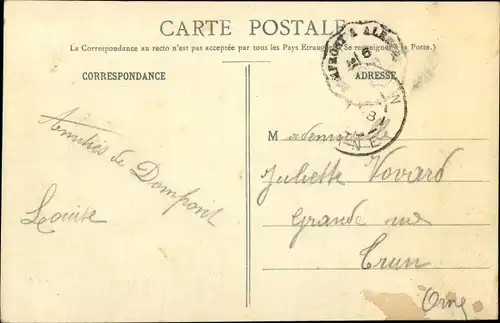 CARTE POSTALE
(La Correspondance au recto n'est pas acceptée par tous les Pays Etrangers. Se renseigner à la Poste.)
CORRESPONDANCE
ADRESSE
Amitiés de Domfront
Louise
Mademoiselle
Juliette Vovard
Grande rue
Trun
Orne